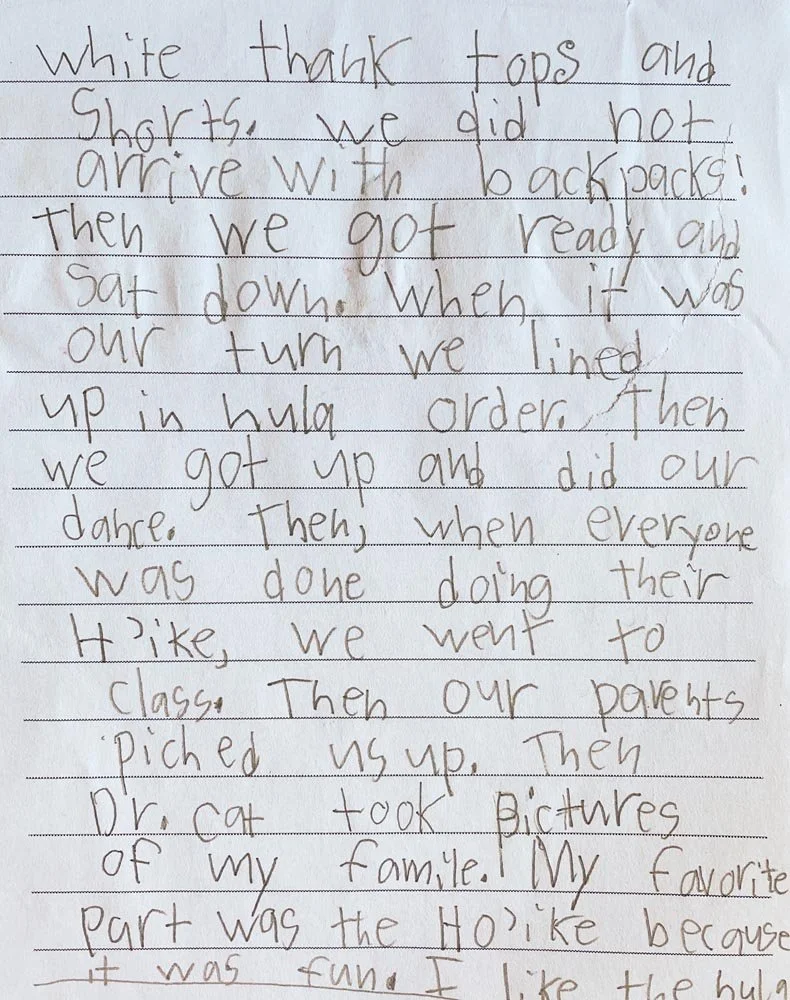 white thank tops and
Shorts. we did not
arrive with backpacks!
Then we got ready and
sat down. When it was
our turn we lined
up in hula order. Then
we got up and did our
dance. Then, when everyone
was done doing their
H'ike, we went to
class. Then our parents
piched us up. Then
Dr. Cat took pictures
of my famile. My favorite
part was the Ho'ike because
it was fun. I like the hula